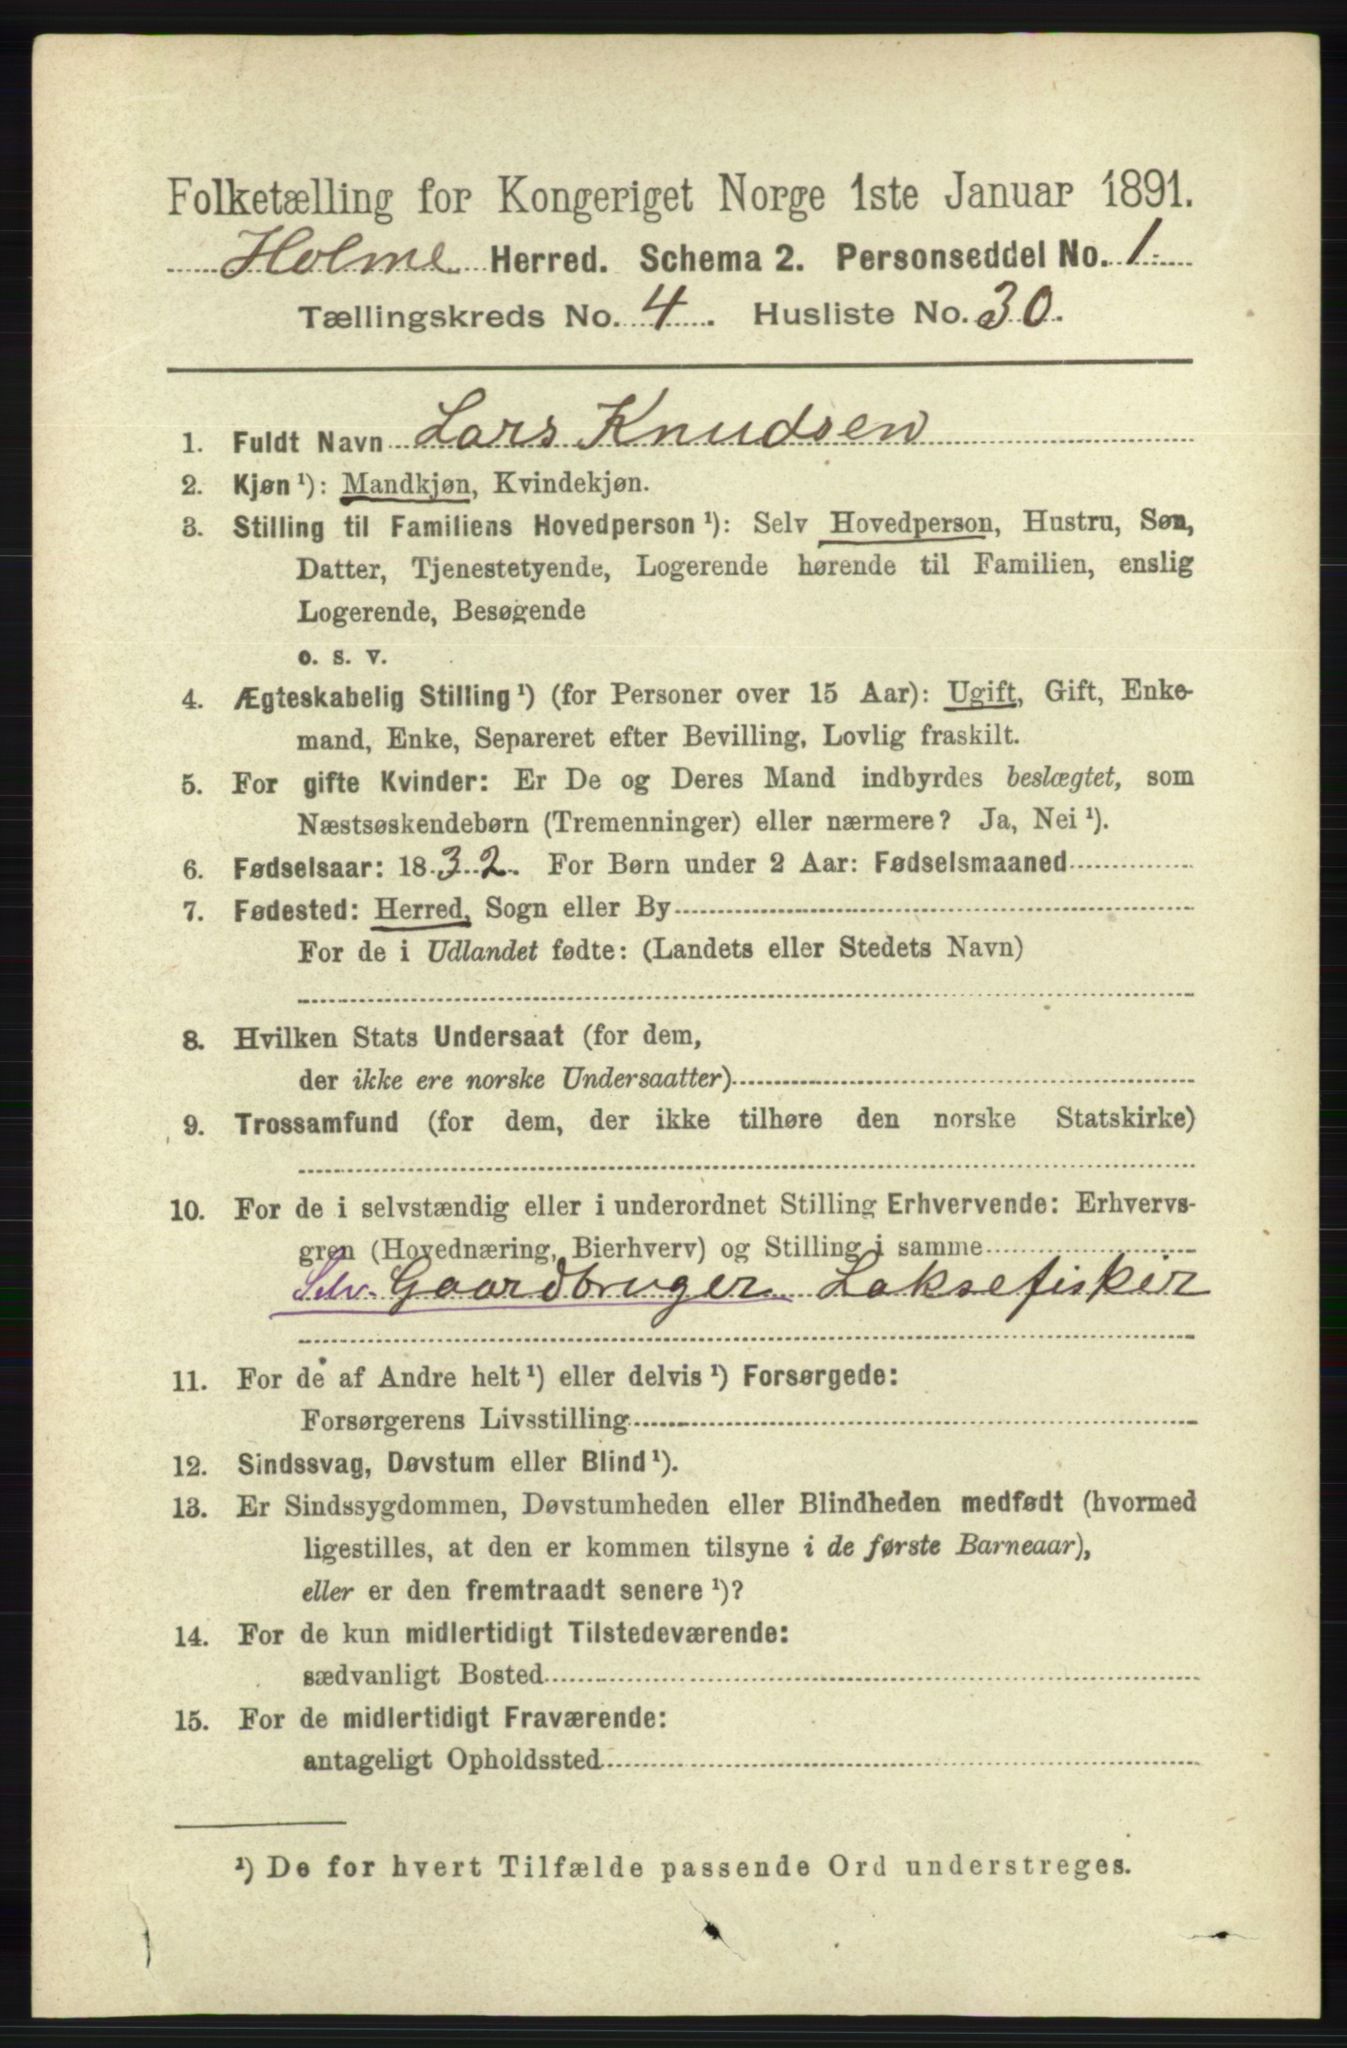 Folketælling for Kongeriget Norge 1ste Januar 1891.
Holme Herred. Schema 2. Personseddel No. 1
Tællingskreds No. 4. Husliste No. 30.
1. Fuldt Navn Lars Knudsen
2. Kjøn ¹): Mandkjøn, Kvindekjøn.
3. Stilling til Familiens Hovedperson ¹): Selv Hovedperson, Hustru, Søn,
Datter, Tjenestetyende, Logerende hørende til Familien, enslig
Logerende, Besøgende
o. s. v.
4. Ægteskabelig Stilling ¹) (for Personer over 15 Aar): Ugift, Gift, Enke-
mand, Enke, Separeret efter Bevilling, Lovlig fraskilt.
5. For gifte Kvinder: Er De og Deres Mand indbyrdes beslægtet, som
Næstsøskendebørn (Tremenninger) eller nærmere? Ja, Nei ¹).
6. Fødselsaar: 1832. For Børn under 2 Aar: Fødselsmaaned
7. Fødested: Herred, Sogn eller By
For de i Udlandet fødte: (Landets eller Stedets Navn)
8. Hvilken Stats Undersaat (for dem,
der ikke ere norske Undersaatter)
9. Trossamfund (for dem, der ikke tilhøre den norske Statskirke)
10. For de i selvstændig eller i underordnet Stilling Erhvervende: Erhvervs-
gren (Hovednæring, Bierhverv) og Stilling i samme
Selv. Gaardbruger Laksefisker
11. For de af Andre helt ¹) eller delvis ¹) Forsørgede:
Forsørgerens Livsstilling
12. Sindssvag, Døvstum eller Blind ¹).
13. Er Sindssygdommen, Døvstumheden eller Blindheden medfødt (hvormed
ligestilles, at den er kommen tilsyne i de første Barneaar),
eller er den fremtraadt senere ¹)?
14. For de kun midlertidigt Tilstedeværende:
sædvanligt Bosted
15. For de midlertidigt Fraværende:
antageligt Opholdssted
¹) De for hvert Tilfælde passende Ord understreges.